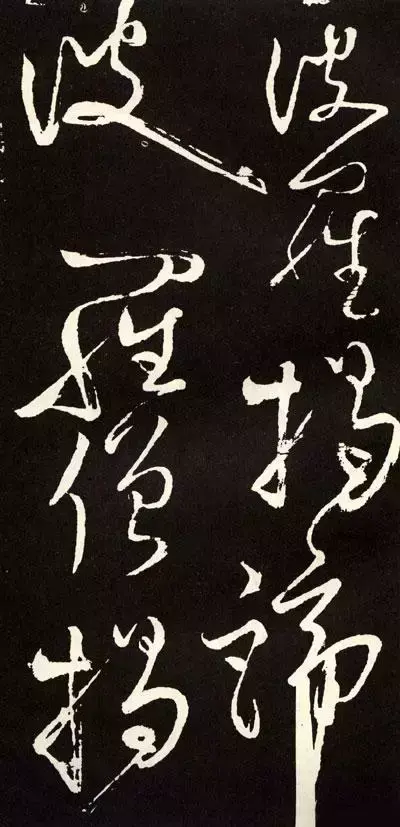 波羅揭諦
波羅僧揭